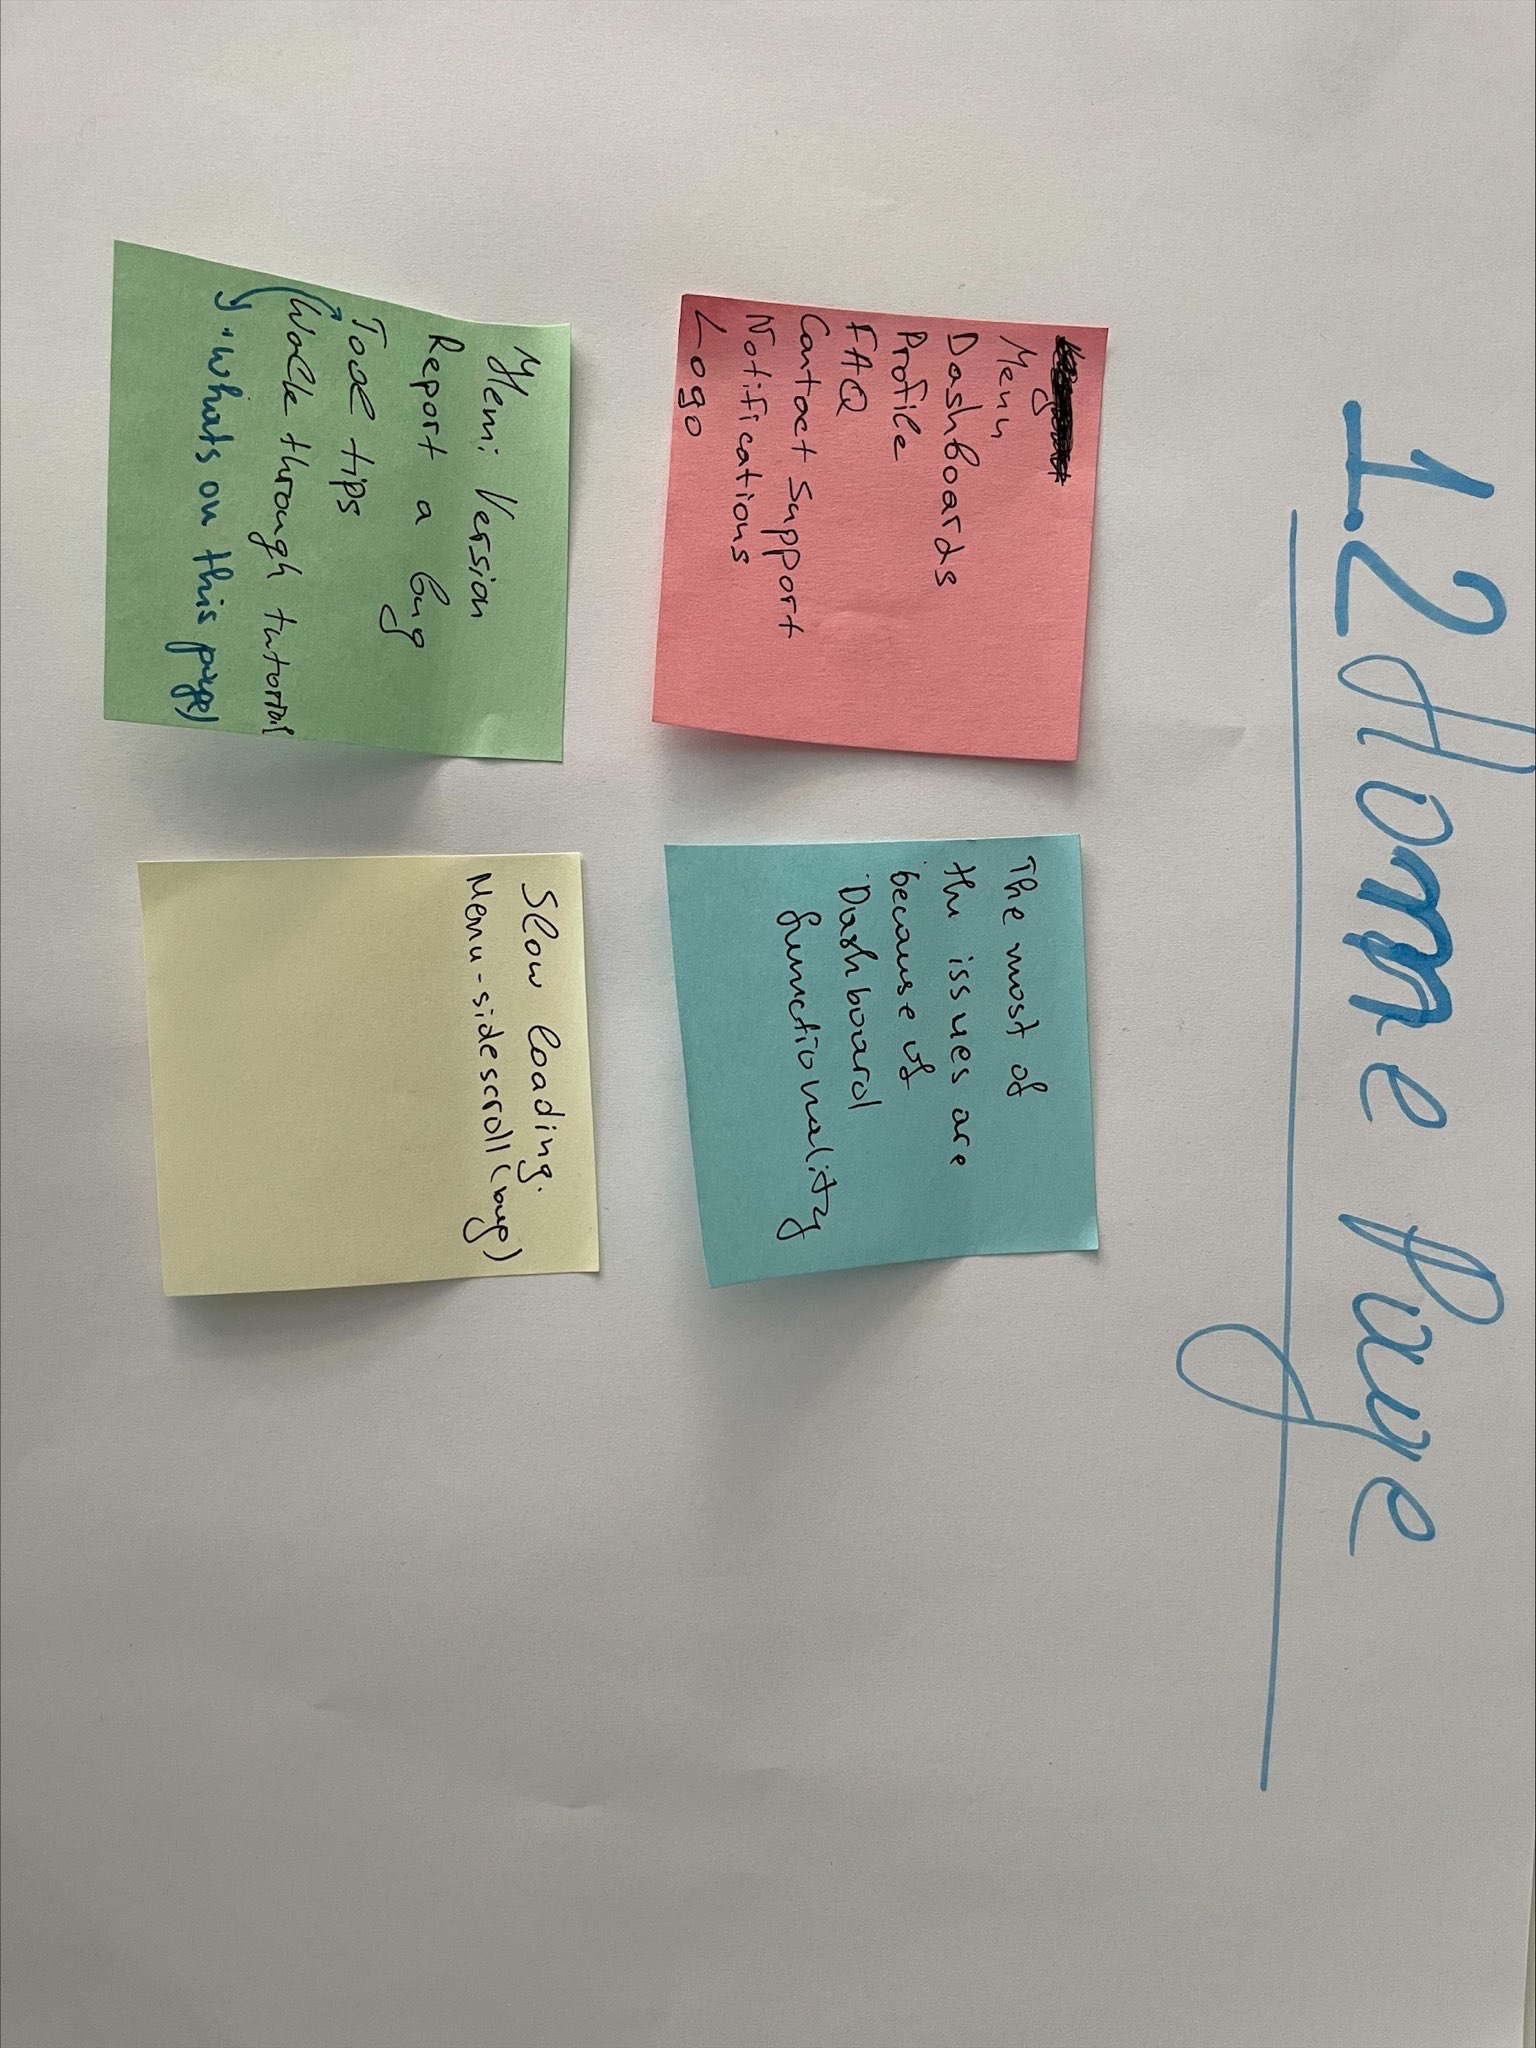 1.2 Home Page
Menu
Dashboards
Profile
FAQ
Contact Support
Notifications
Logo
The most of
the issues are
because of
Dashboard
functionality
Version
Report a bug
Tool tips
(Walk through tutorial
y.whats on this page)
Slow loading.
Menu-sidescroll (bug)